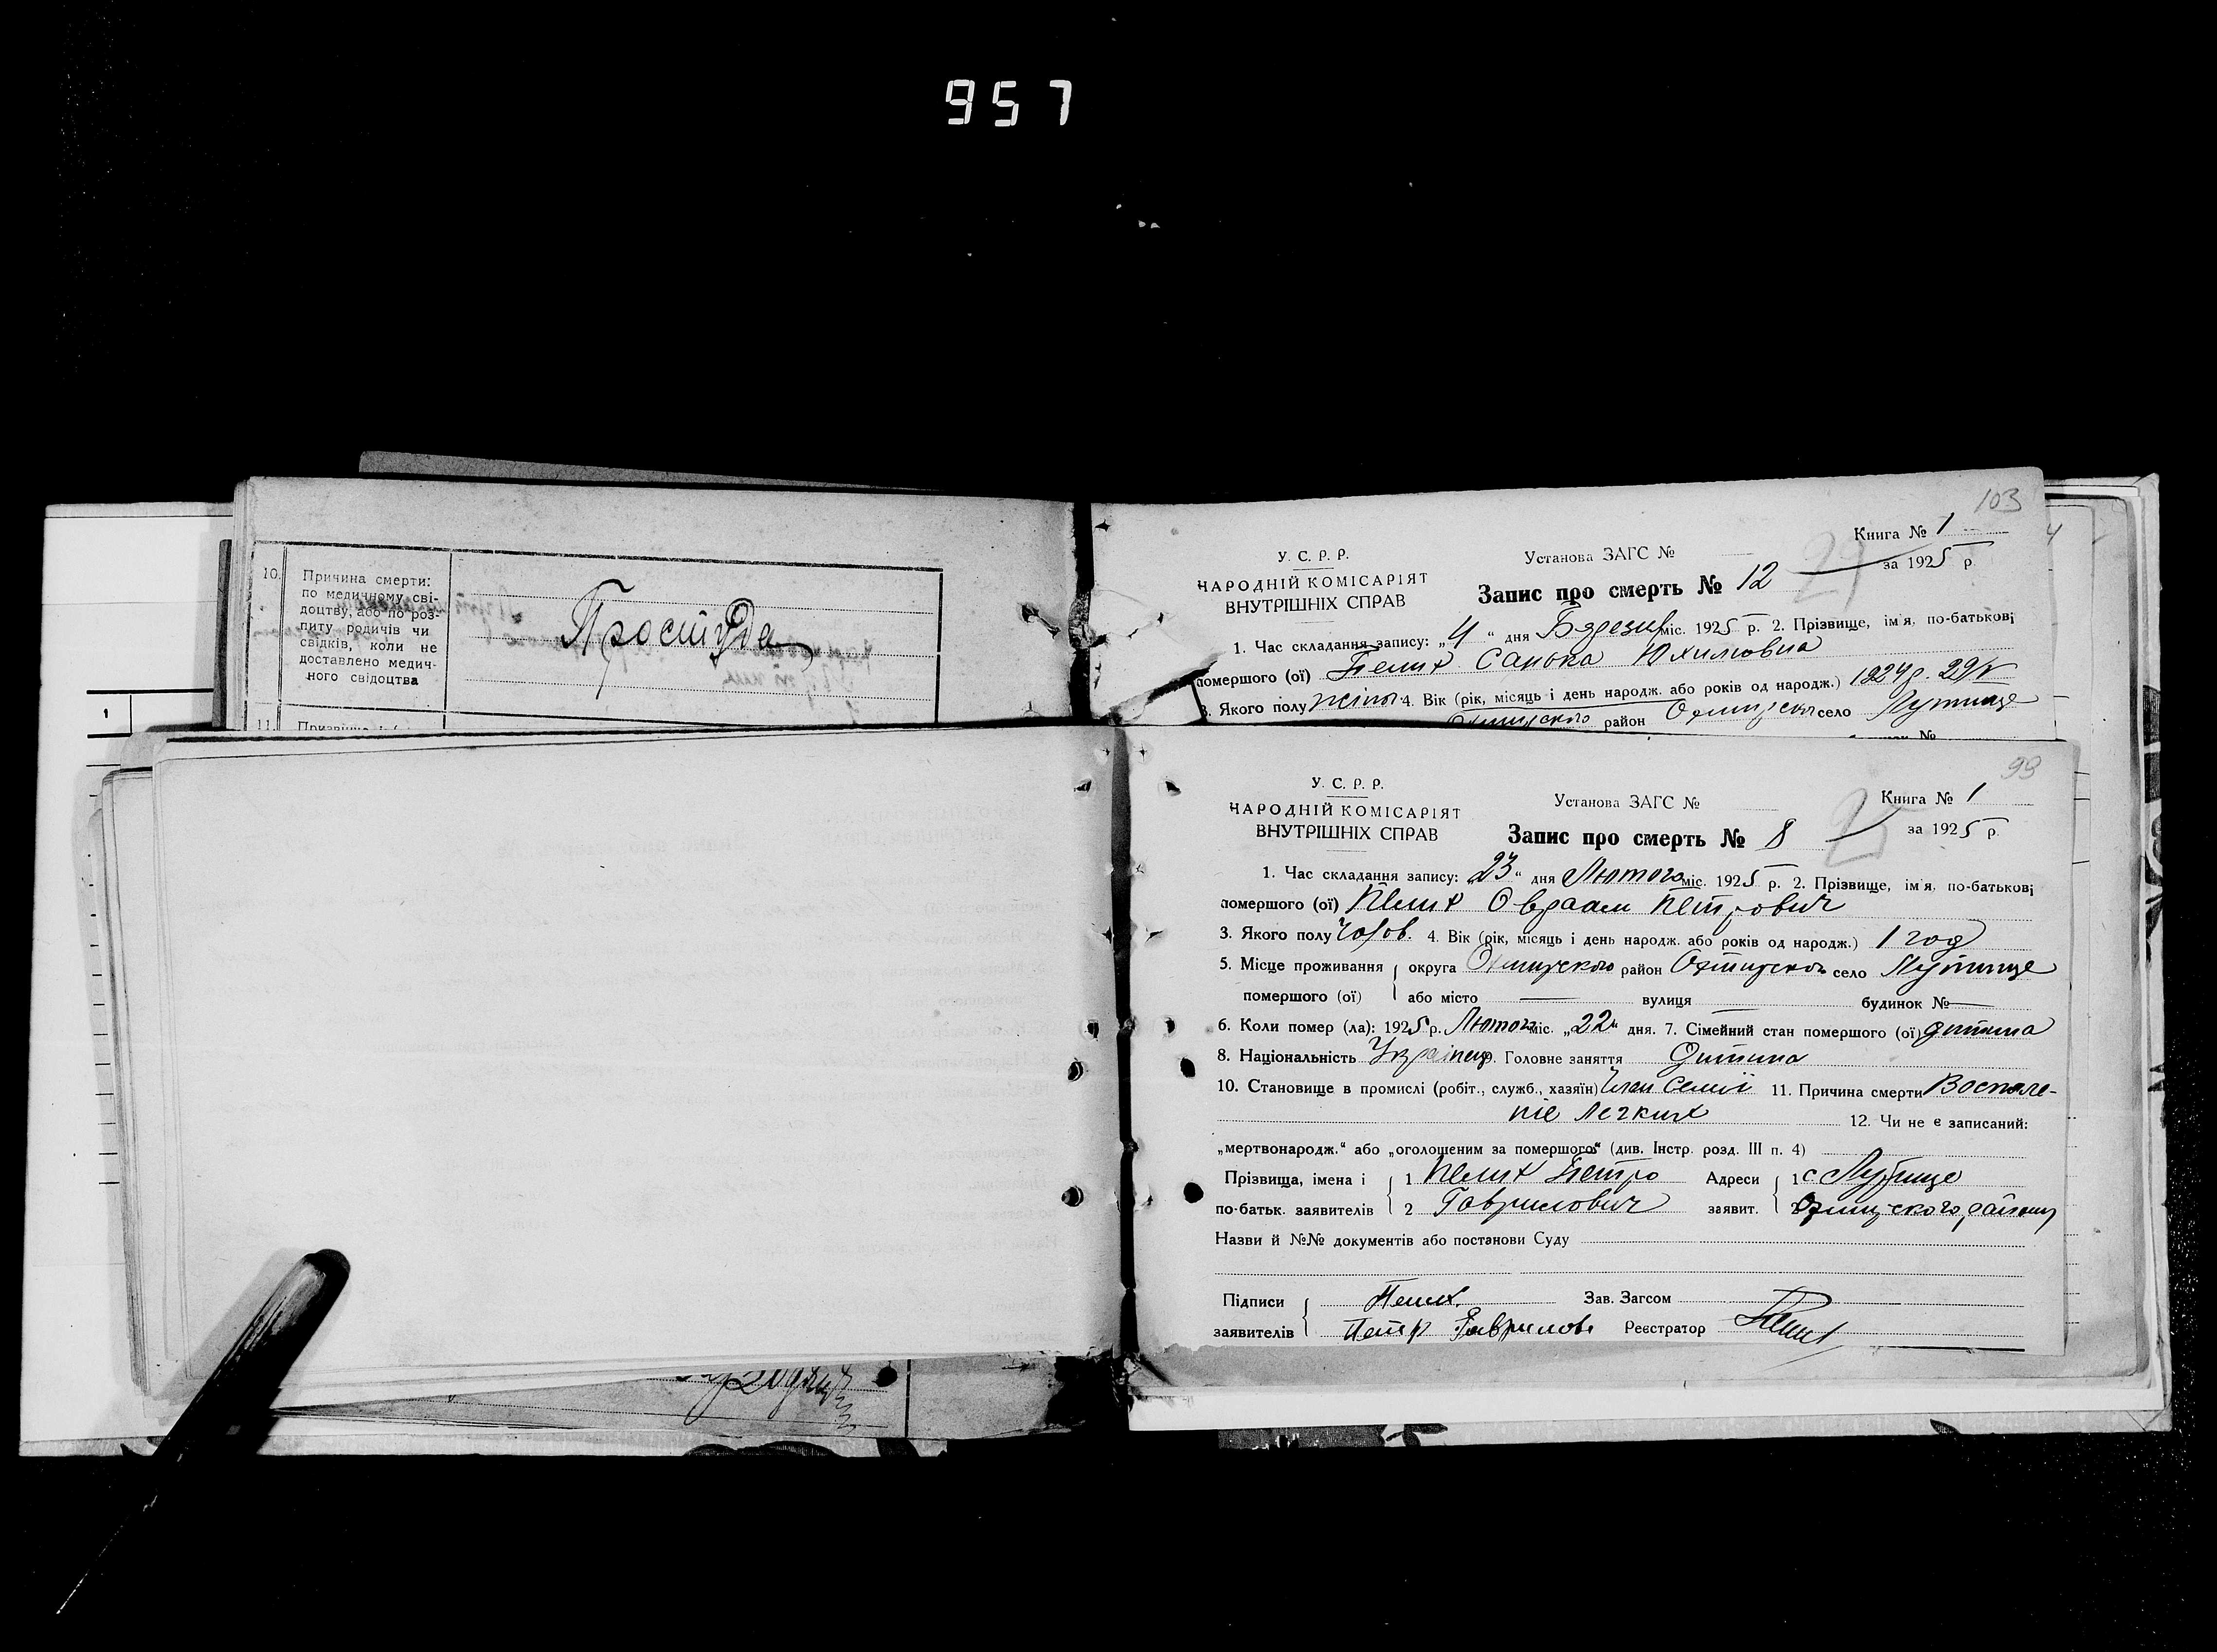 957
10. Причина смерти:
по медичному сві-
доцтву, або по роз-
питу родичів чи
свідків, коли не
доставлено медич-
ного свідоцтва
Простуда
11.
1
103
Книга № 1
У. С. Р. Р. Установа ЗАГС №
за 1925 р.
НАРОДНІЙ КОМІСАРІЯТ
ВНУТРІШНІХ СПРАВ Запис про смерть № 12
1. Час складання запису: „4“ дня міс. 1925 р. 2. Прізвище, ім'я, по-батькові
помершого (ої) Пелих Санька Юхимовна
3. Якого полу жіноч. 4. Вік (рік, місяць і день народж. або років од народж.)
район село Лутище
№
99
У. С. Р. Р.
Установа ЗАГС № Книга № 1
НАРОДНІЙ КОМІСАРІЯТ
ВНУТРІШНІХ СПРАВ Запис про смерть № 8 за 1925 р.
1. Час складання запису: „23“ дня Лютого міс. 1925 р. 2. Прізвище, ім'я, по-батькові
помершого (ої) Пелих Овраам Петрович
3. Якого полу 4. Вік (рік, місяць і день народж. або років од народж.) 1 год
5. Місце проживання округа район село Лутище
помершого (ої) або місто — вулиця будинок № —
6. Коли помер (ла): 1925 р. Лютого міс. „22“ дня. 7. Сімейний стан помершого (ої) дитина
8. Національність Українец 9. Головне заняття Дитина
10. Становище в промислі (робіт., служб., хазяїн) Член семії 11. Причина смерти Воспале-
ніе легких 12. Чи не є записаний:
„мертвонародж.“ або „оголошеним за помершого“ (див. Інстр. розд. III п. 4)
Прізвища, імена і 1 Пелих Петро Адреси 1 с Лутище
по-батьк. заявителів 2 Гаврилович заявит. району
Назви й №№ документів або постанови Суду
Підписи Пелих. Зав. Загсом
заявителів Петр Гаврилов Реєстратор